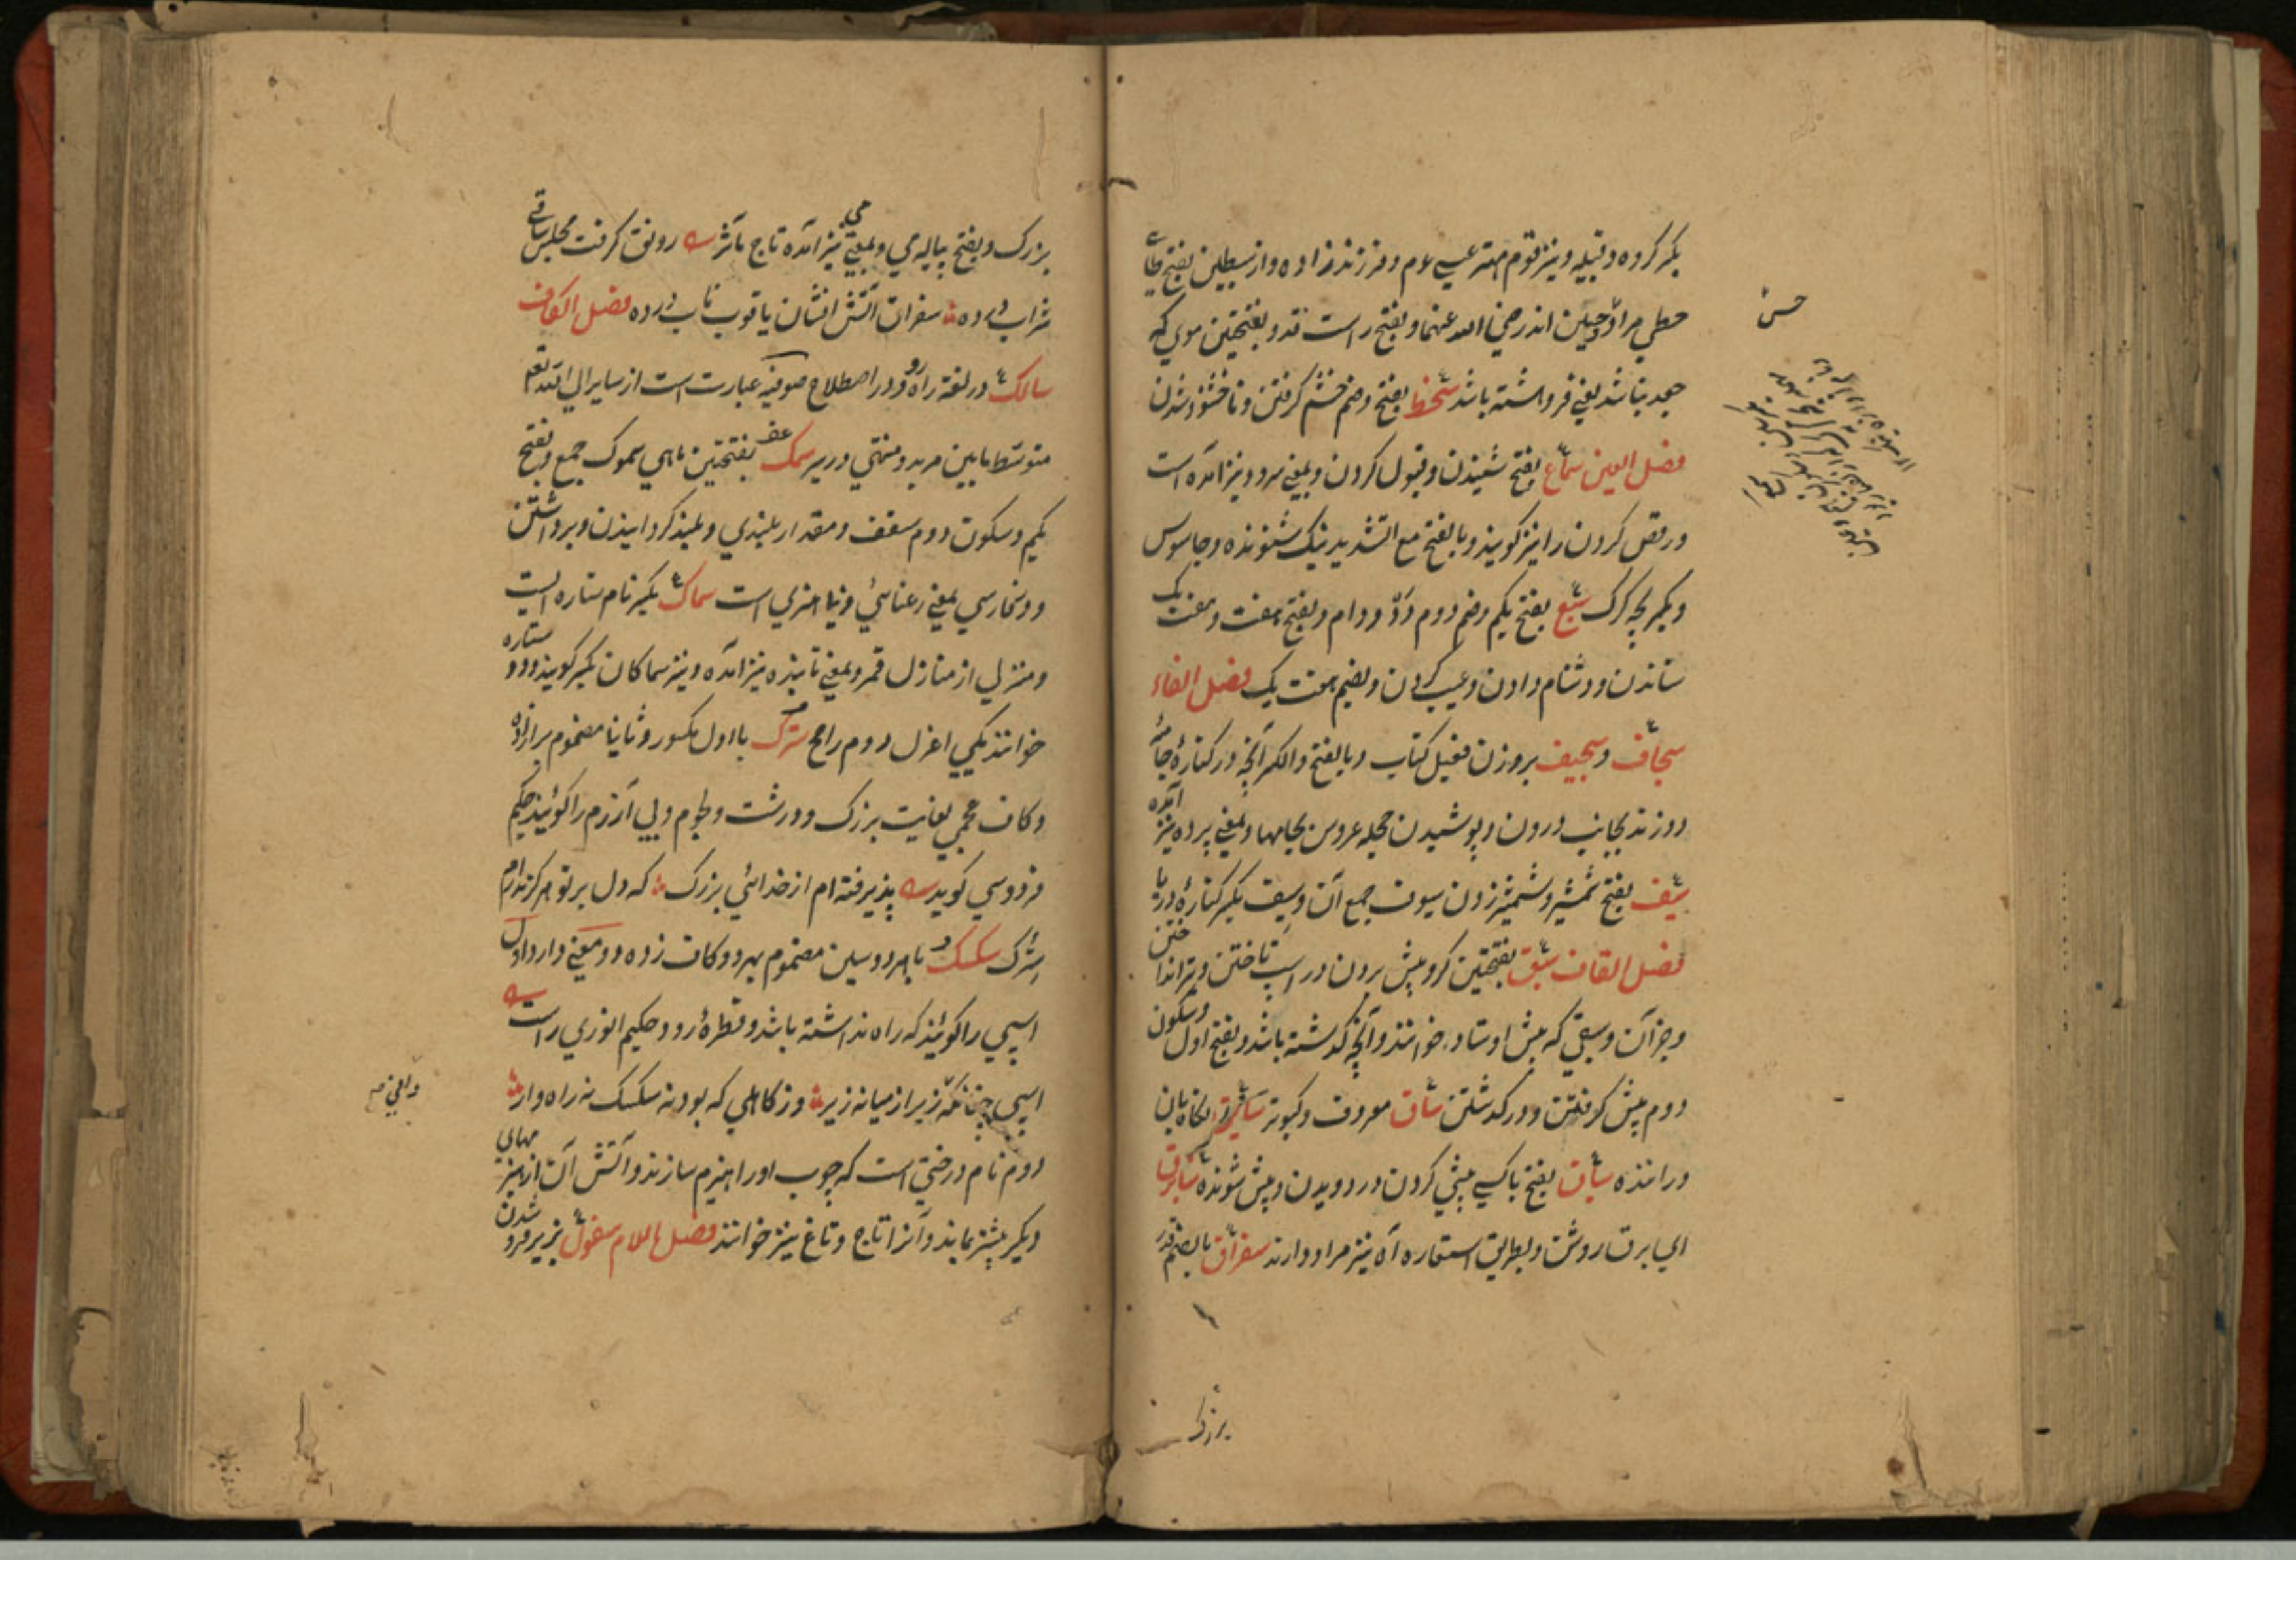 بکسر کروه و قبیله و نیز قوم مهتر عیسی عم و فرزندزاده و از سبطین بفتح طای
حطی مراد حسین اند رضی الله عنهما و بفتح راست قد و بفتحتین موی که
جعد نباشد یعنی فروهشته باشد سخط بفتح و ضم خشم کرفتن و ناخشنود شدن
فصل العین سماع بفتح شنیدن و قبول کردن و بمعنی سرود نیز آمده است
و رقص کردن را نیز کویند و بالفتح مع التشدید نیک شنونده و جاسوس
و بکسر بچه کرک سبع بفتح یکم و ضم دوم دد و دام و بفتح هفت و هفت یک
ستاندن و دشنام دادن و عیب کردن و بضم هفت یک فصل الفاء
سجاف و سجیف بروزن فعیل کتاب و بالفتح والکسر آنچه در کناره جامه
دوزند بجانب درون و پوشیدن حجله عروس بجامها و بمعنی پرده نیز آمده
سیف بفتح شمشیر و شمشیر زدن سیوف جمع آن و سیف بکسر کناره دریا
فصل القاف سبق بفتحتین کرو پیش بردن در اسپ تاختن و تیر انداختن
و جز آن و سبقی که پیش اوستاد خوانند و آنچه کذشته باشد و بفتح اول و سکون
دوم پیش کرفتن و در کذشتن ساق معروف و کبوتر
و راننده سباق بفتح باکسی پیشی کردن در دویدن و پیش شونده
ای برق روشن و بطریق استعاره آه نیز مراد دارند سغراق بالضم قدر
بزرک
حسن
بزرک و بفتح پیاله می و بمعنی می نیز آمده تاج مآثر رونق کرفت مجلس ساقی
شراب در ده سغراق آتش افشان یاقوت ناب در ده فصل الکاف
سالک در لغة راه رو و در اصطلاح صوفیه عبارت است از سایر الی الله تعم
متوسط مابین مرید و منتهی در سیر سمک بفتحتین ماهی سموک جمع و بفتح
یکم و سکون دوم سقف و مقدار بلندی و بلند کردانیدن و برداشتن
و در فارسی بمعنی رعنائی و است سماک بکسر نام ستاره ایست
و منزلی از منازل قمر و بمعنی تابنده نیز آمده و نیز سماکان بکسر کویند و دو ستاره
خوانند یکی اعزل دوم رامح سترک با اول مکسور و ثانیا مضموم برا زده
و کاف عجمی بغایت بزرک و درشت و لجوج و بی آزرم را کویند حکیم
فردوسی کوید پذیرفته ام از خدائی بزرک که دل بر تو هرکز ندارم
سترک سکسک با هر دو سین مضموم بهر دو کاف زده دو معنی دارد اول
اسپی را کویند که راه نداشته باشد و قطره رود حکیم انوری راست
اسپی چنانکه زیر از میانه زیر وز کاهلی که بود نه سکسک نه راه وار
دوم نام درختی است که چوب او را هیزم سازند و آتش آن از هیزم
دیکر بیشتر بماند و آنرا تاج و تاغ نیز خوانند فصل اللام سفول بزیر فرو شدن